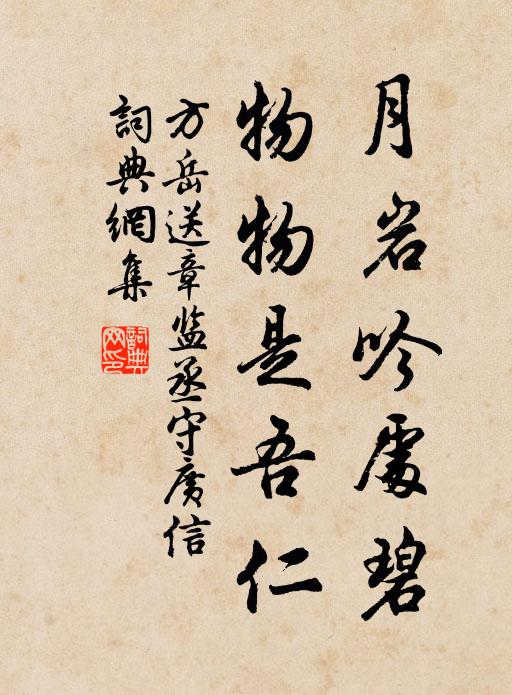 月岩吟處碧
物物是吾仁
方岳送章監丞守广信
詞典網集
詞典網印